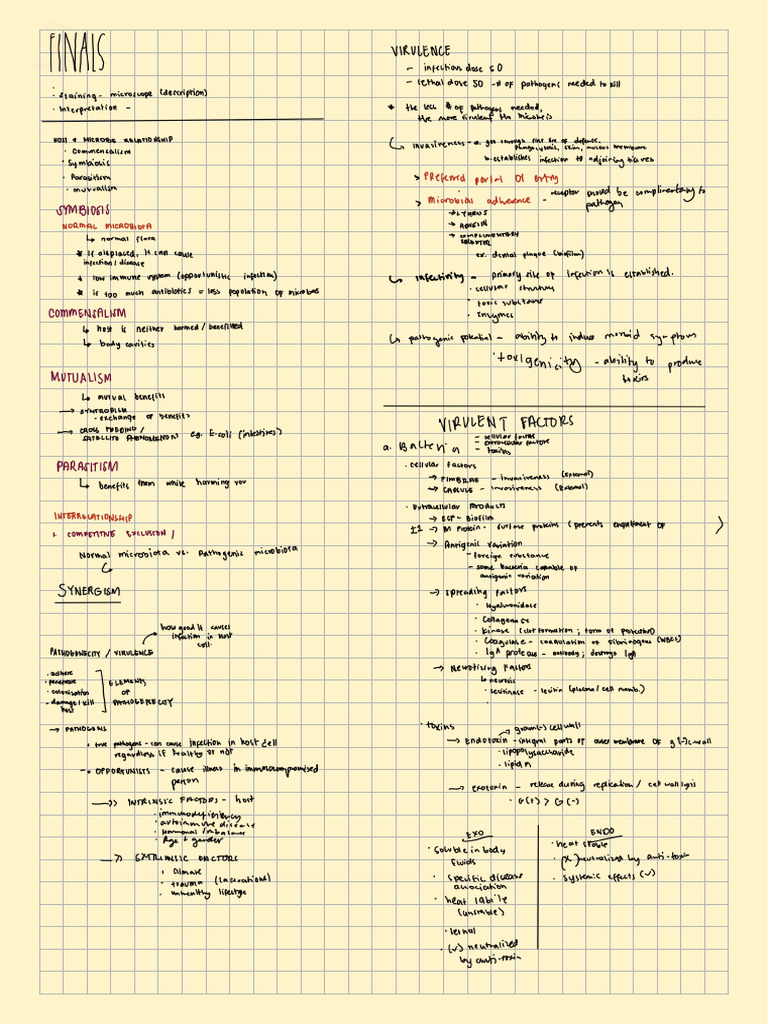 FINALS
· Staining - microscope (description)
· Interpretation -
HOST & MICROBE RELATIONSHIP
· Commensalism
· Symbiosis
· Parasitism
· mutualism
SYMBIOSIS
NORMAL MICROBIOTA
↳ normal flora
* if displaced, it can cause
infection / disease
* low immune system (opportunistic infection)
* if too much antibiotics = less population of microbes
COMMENSALISM
↳ host is neither harmed / benefitted
↳ body cavities
MUTUALISM
↳ mutual benefits
→ SYNTROPISM
- exchange of benefits
→ CROSS FEEDING /
SATELLITE PHENOMENON eg. E-coli (intestines)
PARASITISM
↳ benefits them while harming you
INTERRELATIONSHIP
1. COMPETITIVE EXCLUSION /
Normal microbiota vs. Pathogenic microbiota
SYNERGISM
how good it causes
infection in host
cell.
PATHOGENECITY / VIRULENCE
· adhere
· penetrate
· colonisation
· damage / kill
host
ELEMENTS
OF
PATHOGENECITY
→ PATHOGENS
· true pathogens - can cause infection in host cell
regardless if healthy or not
- OPPORTUNISTS - cause illness in immunocompromised
person
→ INTRINSIC FACTORS - host
· immunodeficiency
· autoimmune disease
· hormonal imbalance
· Age + gender
→ EXTRINSIC FACTORS
· climate
· trauma (lacerations)
· unhealthy lifestyle
VIRULENCE
- infectious dose 50
- lethal dose 50 → # of pathogens needed to kill
* the less # of pathogens needed,
the more virulent the microbe is
↳ invasiveness - a. get through first line of defense.
phagocytosis, skin, mucous membrane
b. establishes infection to adjoining tissues
> Preferred portal of entry
> Microbial adherence - receptor should be complimentary to
pathogen
→ LIGANDS
→ ADHESIN
→ COMPLIMENTARY
RECEPTOR
ex. dental plaque (biofilm)
↳ infectivity - primary site of infection is established.
· cellular structure
· toxic substance
· enzymes
↳ pathogenic potential - ability to induce morbid symptoms
· toxigenicity - ability to produce
toxins
VIRULENT FACTORS
a. Bacteria
- cellular factors
- extracellular factors
- toxins
· cellular factors
→ FIMBRIAE - invasiveness (external)
→ CAPSULE - invasiveness (external)
· Extracellular Products
→ EGP - Biofilm
→ M Protein - surface proteins (prevents engulfment of
→ Antigenic variation
- foreign substance
- some bacteria capable of
antigenic variation
→ spreading factors
· Hyaluronidase
· Collagenase
· Kinase (clot formation ; form of protection)
· Coagulase - coagulation of fibrinogens (WBCs)
· IgA protease - antibody; destroys IgA
→ Necrotizing Factors
↳ necrosis
· lecitinase - lecitin (plasma / cell memb.)
· toxins
gram (-) cell wall
→ ENDOTOXIN - integral parts of outer membrane of g(-) c-wall
· lipopolysaccharide
· lipid A
→ exotoxin - release during replication / cell wall lysis
· G(+) > G(-)
EXO
· soluble in body
fluids
· specific disease
association
· heat labile
(unstable)
· lethal
· (✓) neutralized
by anti-toxin
ENDO
· heat stable
· (X) neutralized by anti-toxin
· systemic effects (✓)